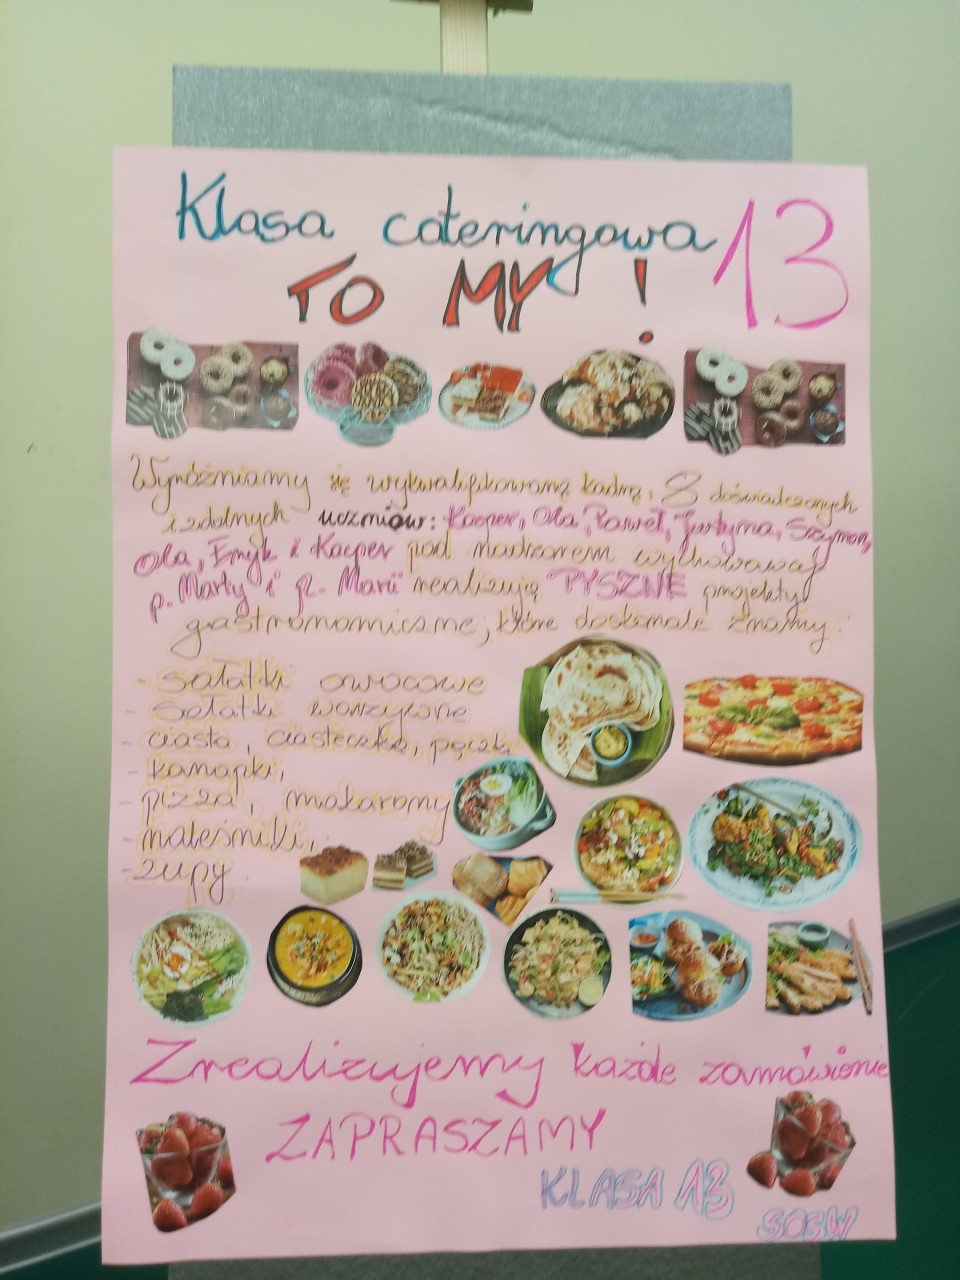 Klasa cateringowa 13
TO MY !
Wyróżniamy się wykwalifikowaną kadrą, 8 doświadczonych
i zdolnych uczniów: Kacper, Ola, Paweł, Justyna, Szymon,
Ola, Eryk i Kacper pod nadzorem wychowawcy
p. Marty i p. Marii realizują PYSZNE projekty
gastronomiczne, które doskonale znamy:
- sałatki owocowe
- sałatki warzywne
- ciasta, ciasteczka, pączki
- kanapki,
- pizza, makarony
- naleśniki,
- zupy.
Zrealizujemy każde zamówienie
ZAPRASZAMY
KLASA 13
SOSW